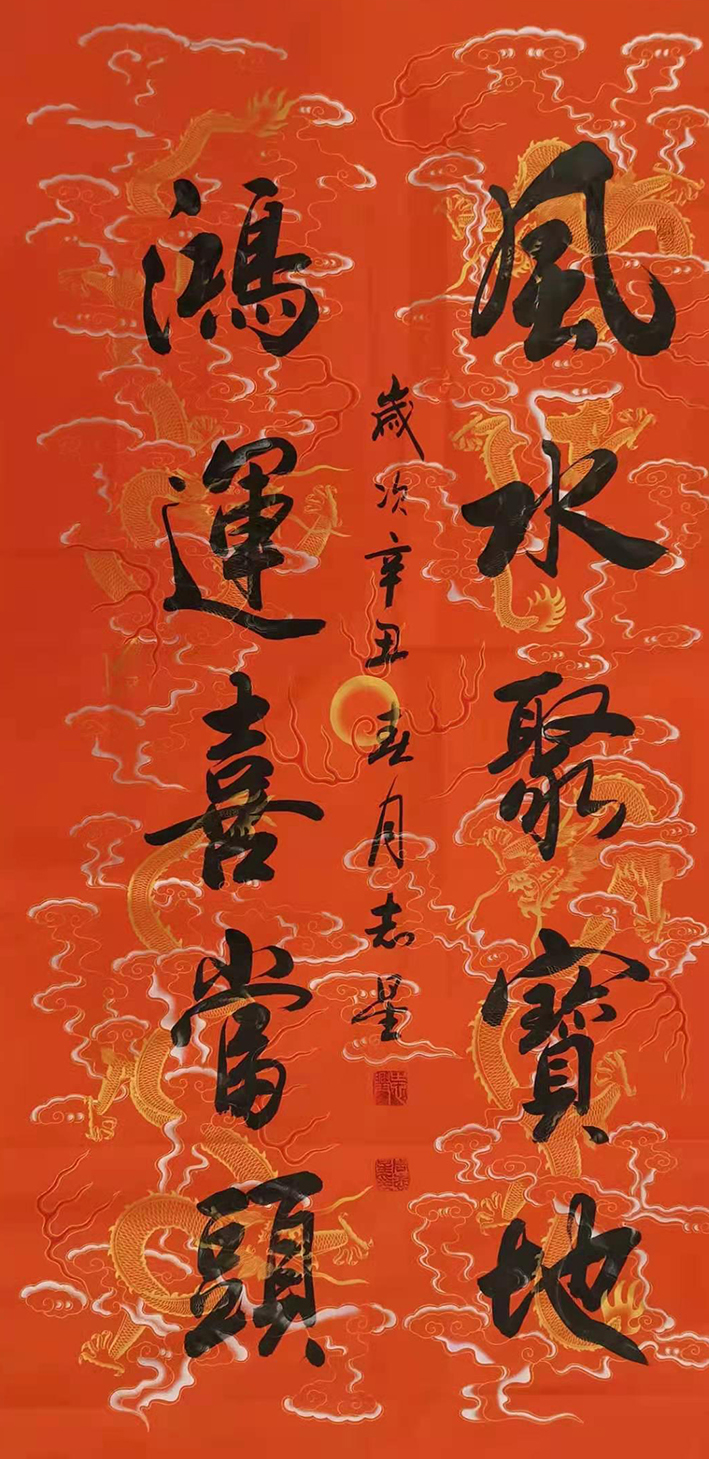 風水聚寶地
鴻運喜當頭
歲次辛丑春月志星